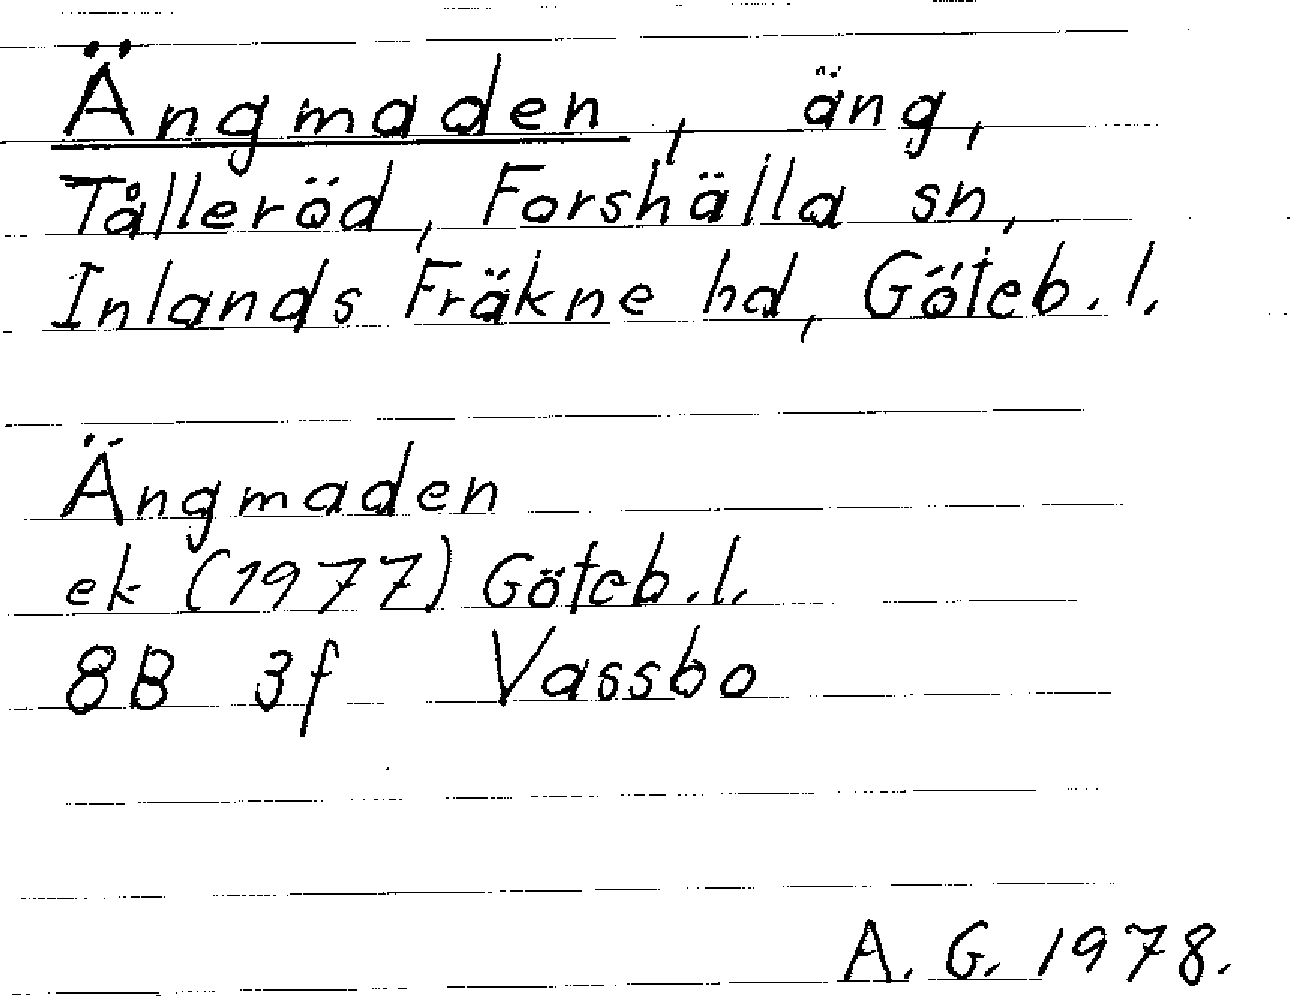 Ängmaden, äng,
Tålleröd, Forshälla sn,
Inlands Fräkne hd, Göteb. l.
Ängmaden
ek (1977) Göteb. l.
8B 3f Vassbo
A. G. 1978.